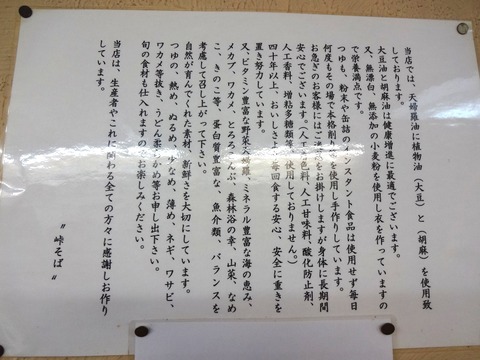 当店では、天婦羅油に植物油（大豆）と（胡麻）を使用致
しております。
大豆油と胡麻油は健康増進に最適でございます。
又、無漂白、無添加の小麦粉を使用し衣を作っていますの
で栄養満点です。
つゆも、粉末や缶詰のインスタント食品は使用せず毎日
何度もその場で本格削り節を使用し手作りしています。
お急ぎのお客様にはご迷惑をお掛けしますが身体に長期間
安心でございます。（人工着色料、人工甘味料、酸化防止剤、
人工香料、増粘多糖類等は使用しておりません。）
四十年以上、おいしさより毎回食する安心、安全に重きを
置き努力しています。
又、ビタミン豊富な野菜天婦羅、ミネラル豊富な海の恵み、
メカブ、ワカメ、とろろこんぶ、森林浴の幸、山菜、なめ
こ、きのこ等、蛋白質豊富な、魚介類、バランスを
考慮して召し上がって下さい。
自然が育んでくれた素材、新鮮さを大切にしています。
つゆの、熱め、ぬるめ、少なめ、薄め、ネギ、ワサビ、
ワカメ等抜き、うどん柔らかめ等お申し出下さい。
旬の食材も仕入れますのでお楽しみください。
当店は、生産者やこれに関わる全ての方々に感謝しお作り
しています。
〃峠そば〃